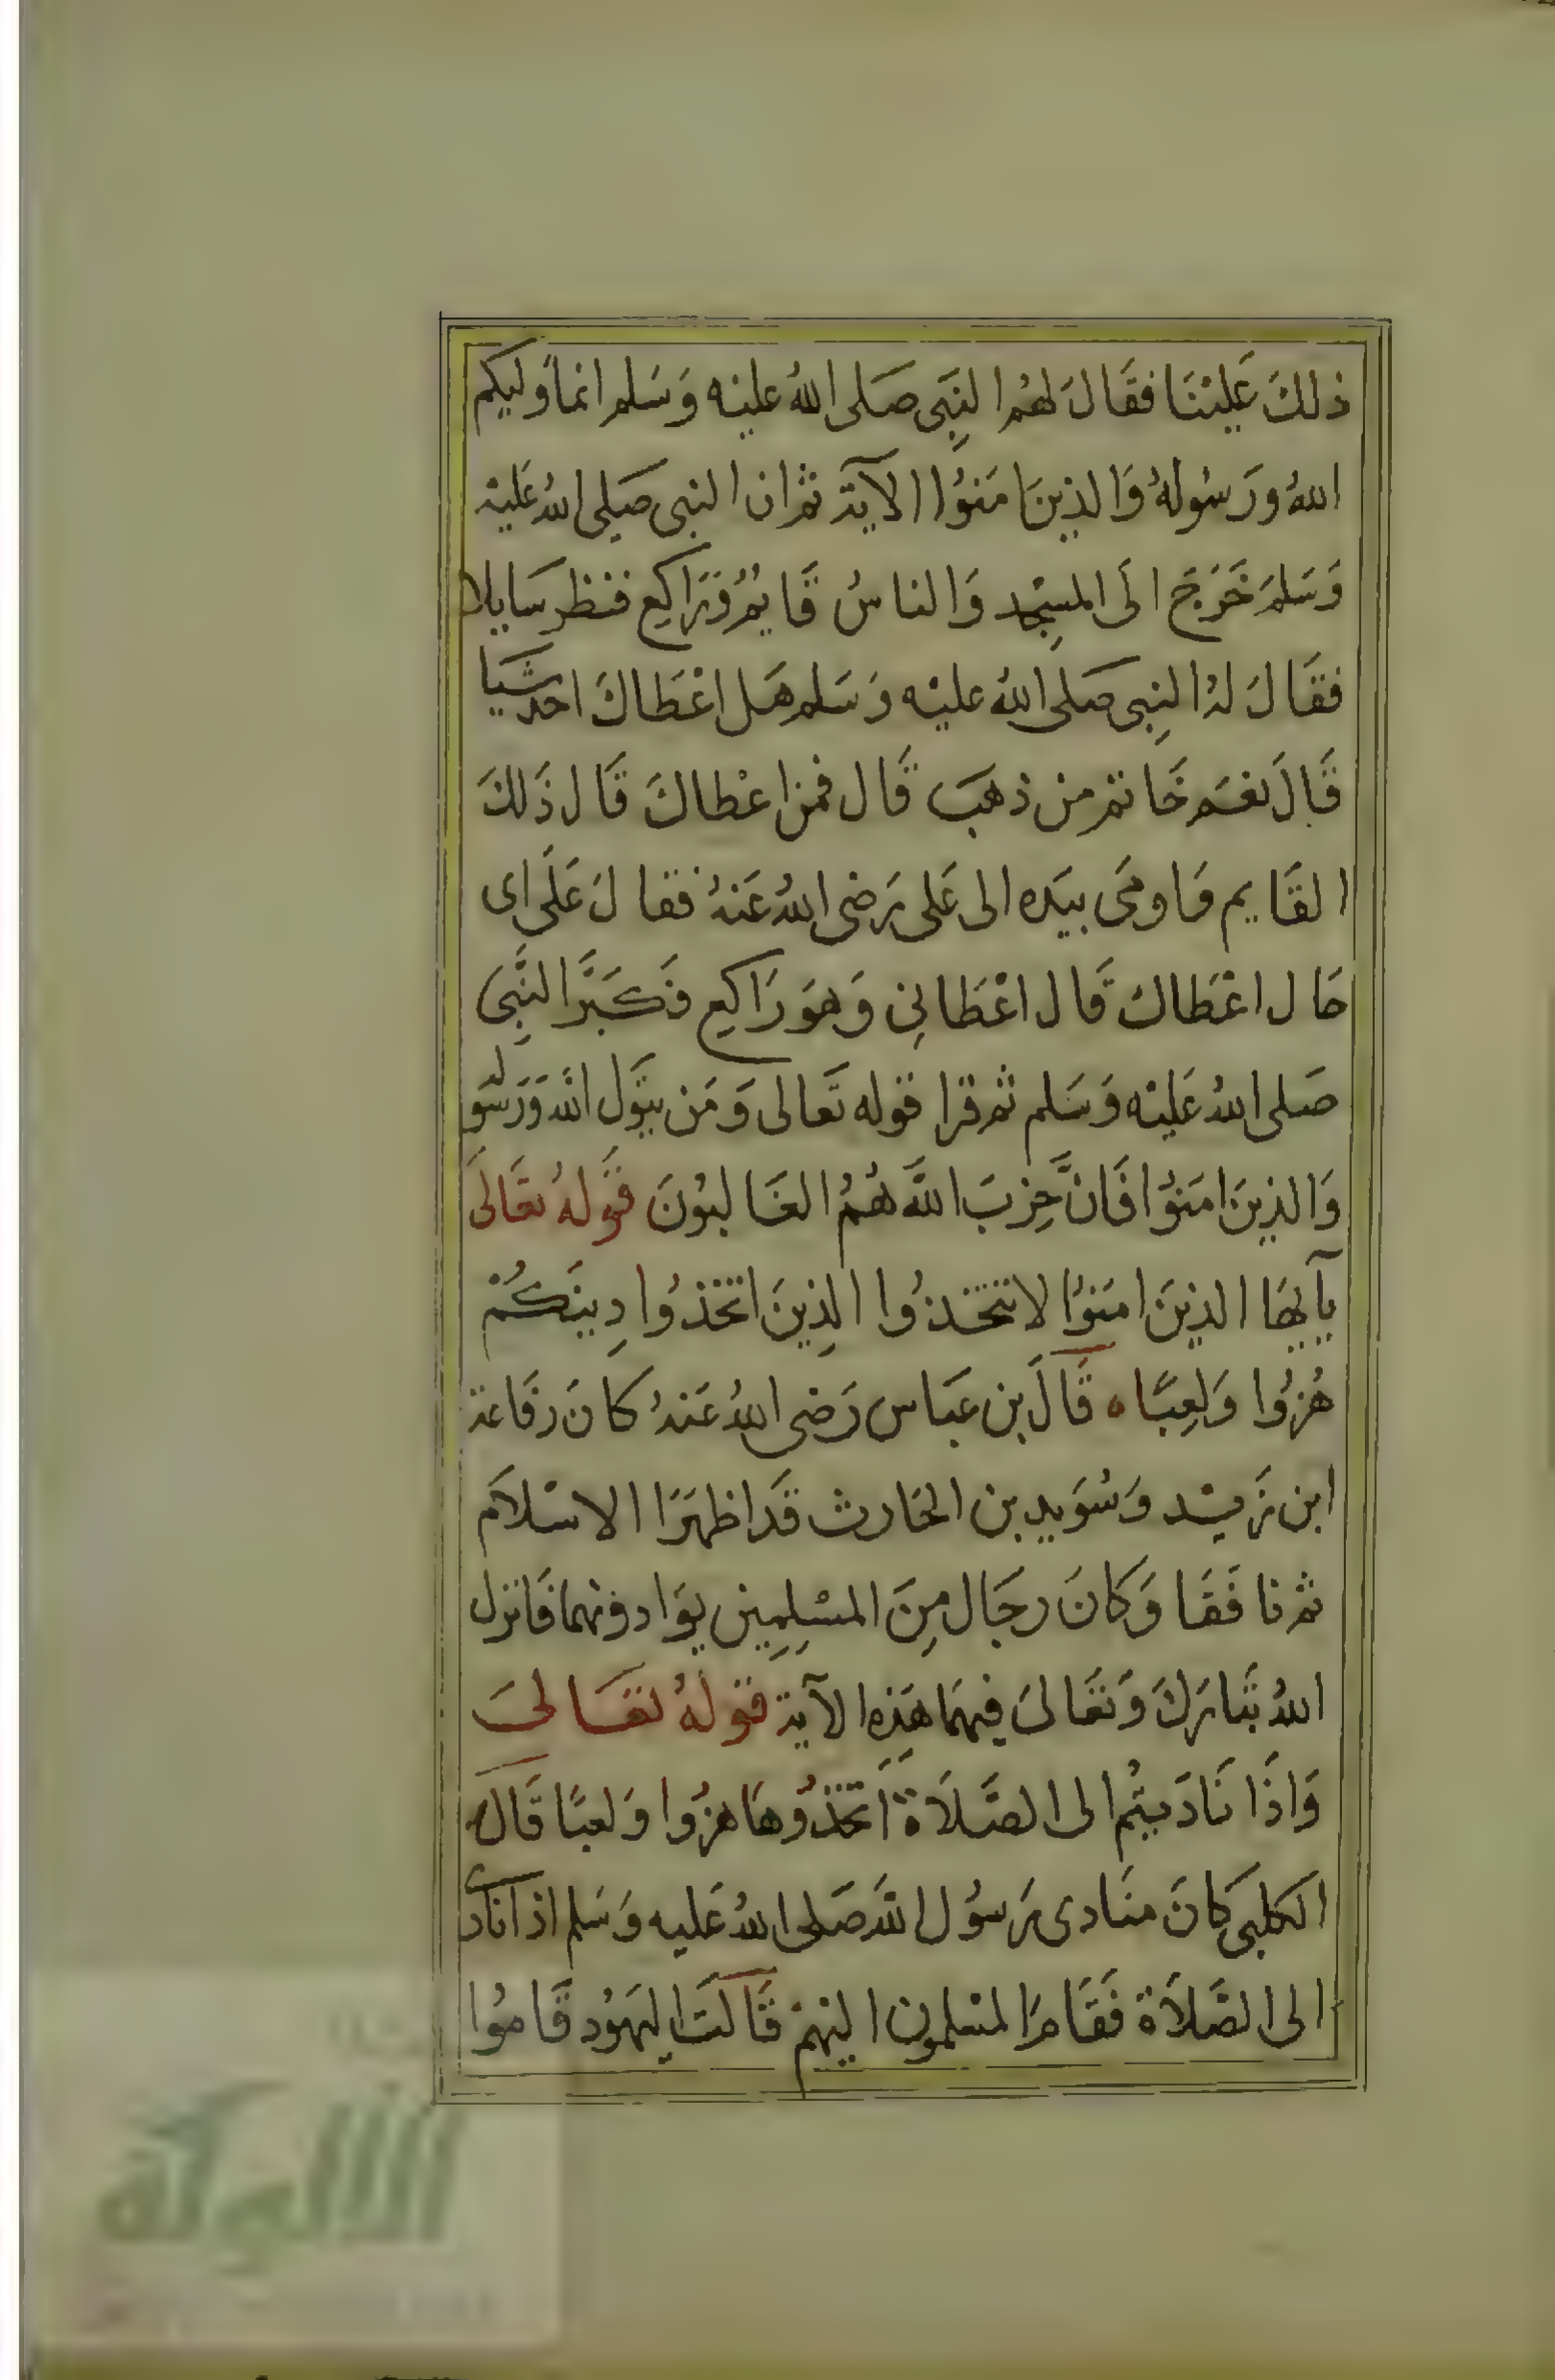 ذلكَ عَليْنَا فقَالَ لهُم النبِى صَلى اللهُ عليْه وَسَلم انماَ وليكم
اللهُ ورَسُولهُ وَالذينَ امَنوُا الآيَة ثم ان النبى صَلى اللهُ عَليْه
وَسَلمَ خَرَجَ الَى المسِجْد وَالناسُ قَايمُ وَرَاكِع فنظر سَايلا
فقَالَ لهُ النبِى صَلى اللهُ عليْه وَسَلم هَل اعْطَاكَ احد شَيا
قَالَ نعَم خَاتم من ذهَب قَال فمن اعْطاكَ قَال ذَلكَ
القَايم فَاومَى بيَده الى عَلى رَضى اللهُ عَنهُ فقالَ عَلَى اى
حَال اعْطَاكَ قَال اعْطَانِى وَهوَ رَاكِع فَكَبَّرَ النَّبِى
صَلى اللهُ عَليْه وَسَلم ثم قرا قوله تَعالى وَمَن يتَوَل اللَه وَرَسُوله
وَالذينَ امَنوُا فَانَّ حِزبَ اللَّه هُمُ الغَالبوُنَ قَولهُ تعَالَى
يآ ايهَا الذينَ امَنوُا لا تتخذوُا الذِينَ اتخذوُا دِينَكُمْ
هُزوُا وَلعِبًا ه قَالَ بن عَبَاس رَضى اللهُ عَنهُ كانَ رفَاعَة
ابن زَيْد وَسُوَيد بن الحَارث قَد اظهَرَا الاسْلاَم
ثم نافَقَا وَكانَ رجَال مِنَ المسْلِمِين يوَادونهما فَانزل
اللهُ تبَارَكَ وَتعَالىَ فِيهمَا هَذِه الآية قَولهُ تعَالىَ
وَاذَا نَادَيتُم الى الصَّلاَة اتَخذوُهَا هزوُا وَلعبًا قَالَ
الكلبى كانَ منَادى رَسوُل اللَه صَلى اللهُ عَليه وَسَلم اذا نادَى
الى الصَّلاَة فَقَامَ المسْلمون اليْهمْ قَالَت اليَهوُد قَاموُا
الألوكة